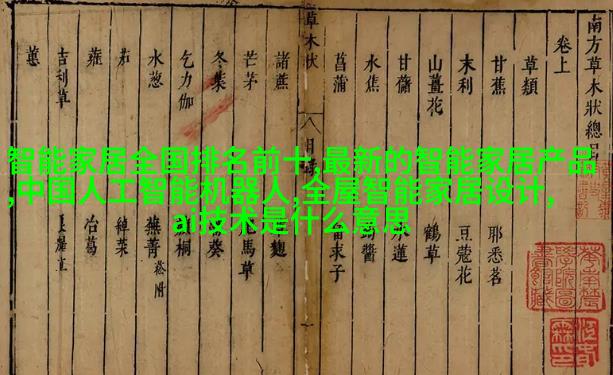 智能家居全国排名前十,最新的智能家居产品
,中国人工智能机器人,全屋智能家居设计,
ai技术是什么意思
南方草木狀總目
卷上
草類
甘蕉
耶悉茗
末利
豆蔻花
山薑花
鶴草
甘藷
水蓮
水蕉
醬
菖蒲
求子
草木狀
八
諸蔗
麴
芒茅
馬草
冬葉
葵
乞力伽
桐
水葱
蕪菁
菘附
茄
綽菜
蕹
冶葛
吉利草
蕙